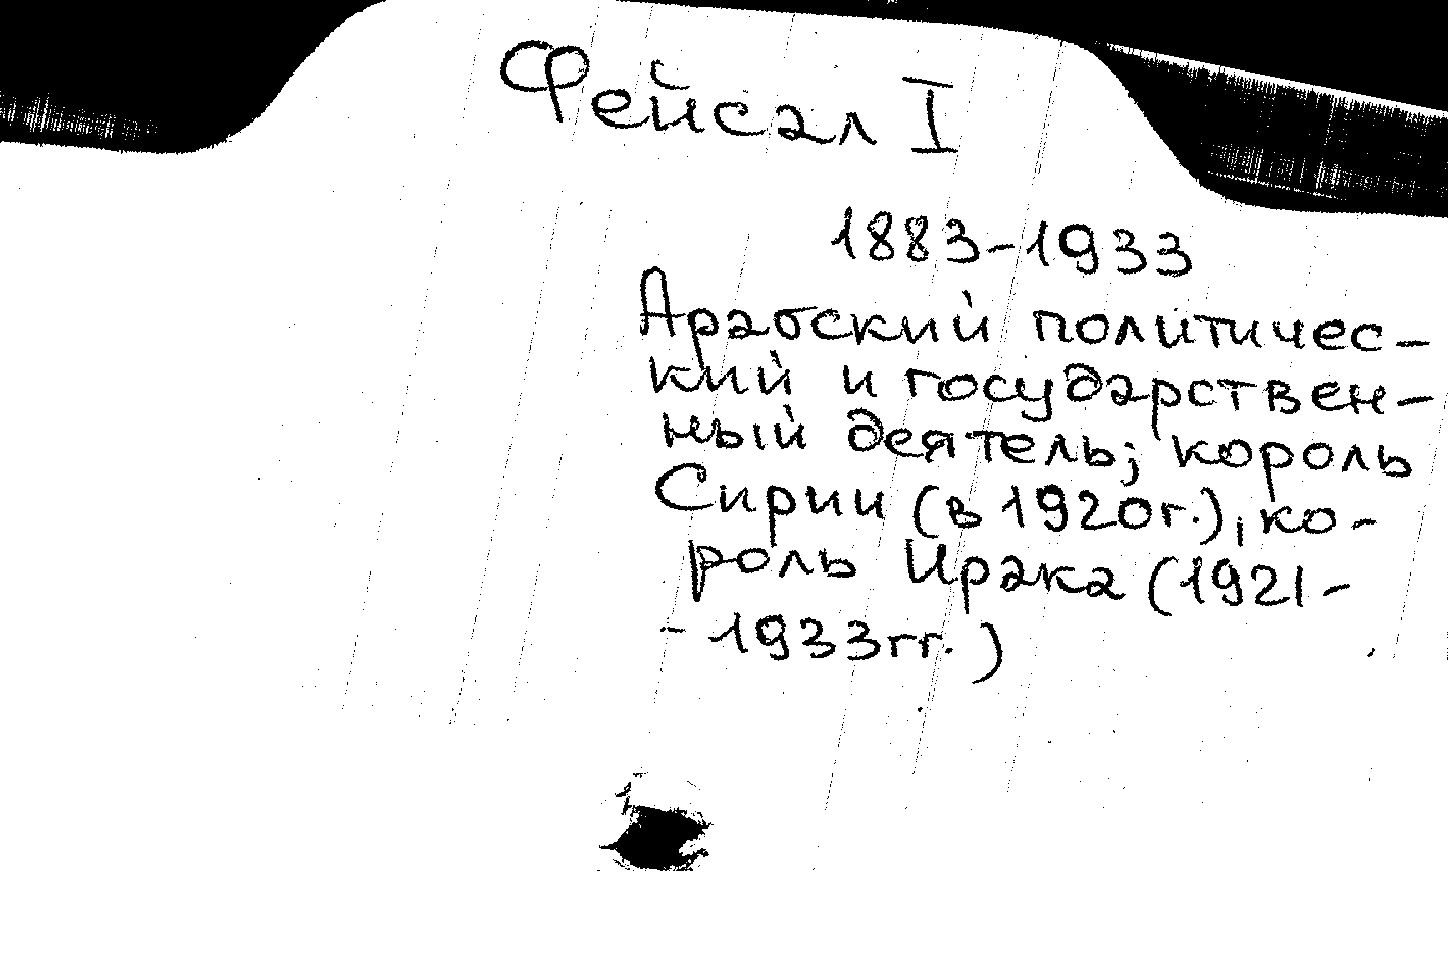 Фейсал I
1883-1933
Арабский политичес-
кий и государствен-
ный деятель; король
Сирии (в 1920г.), ко-
роль Ирака (1921-
-1933гг.)